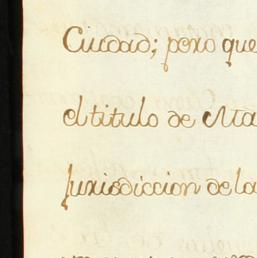 Ciudad; pero que
el titulo de Ma
Jurisdiccion de la